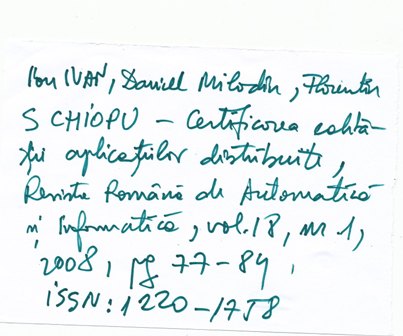 Ion IVAN, Daniel Milodin, Florentin
SCHIOPU – Certificarea calită-
ții aplicațiilor distribuite,
Revista Română de Automatică
și Informatică, vol. 18, nr 1,
2008, pg 77-84,
ISSN: 1220-1758